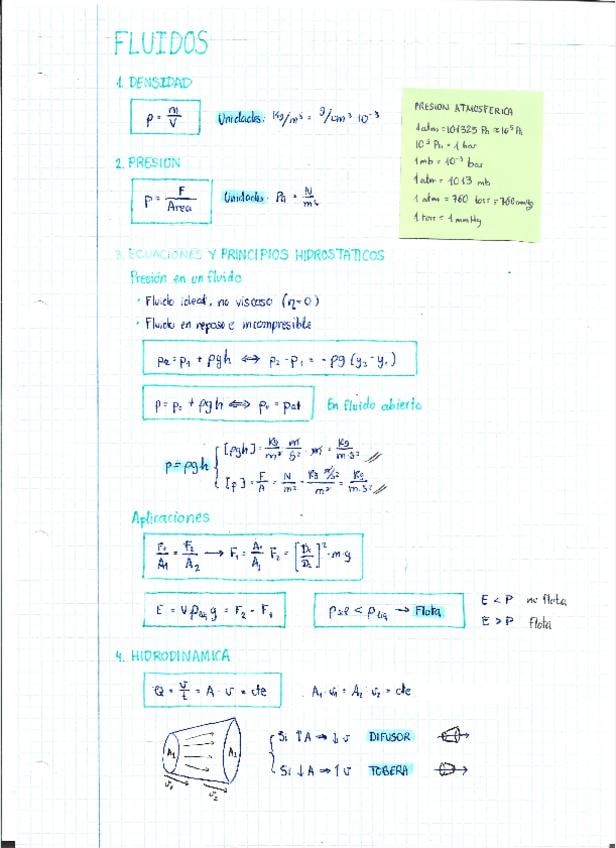 FLUIDOS
1. DENSIDAD
ρ = m/V Unidades: Kg/m³ = g/cm³ 10⁻³
PRESION ATMOSFERICA
1 atm = 101325 Pa ≈ 10⁵ Pa
10⁵ Pa = 1 bar
1 mb = 10⁻³ bar
1 atm = 1013 mb
1 atm = 760 torr = 760 mmHg
1 torr = 1 mmHg
2. PRESION
P = F/Area Unidades: Pa = N/m²
3. ECUACIONES Y PRINCIPIOS HIDROSTATICOS
Presión en un fluido
· Fluido ideal, no viscoso (η=0)
· Fluido en reposo e incompresible
p₂ = p₁ + ρgh ⟺ p₂ - p₁ = -ρg (y₂ - y₁)
p = p₀ + ρgh ⟺ p₀ = pat En fluido abierto
p = ρgh { [ρgh] = Kg/m³ · m/s² · m = Kg/m·s²
[p] = F/A = N/m² = Kg m/s²/m² = Kg/m·s²
Aplicaciones
F₁/A₁ = F₂/A₂ → F₁ = A₁/A₂ F₂ = [D₁/D₂]² · m·g
E = Vρliq g = F₂ - F₁
ρsol < ρliq → Flota
E < P no flota
E > P flota
4. HIDRODINAMICA
Q = V/t = A · v = cte A₁ · v₁ = A₂ · v₂ = cte
A₁ A₂
v₁ v₂
Si ↑A ⇒ ↓v DIFUSOR
Si ↓A ⇒ ↑v TOBERA